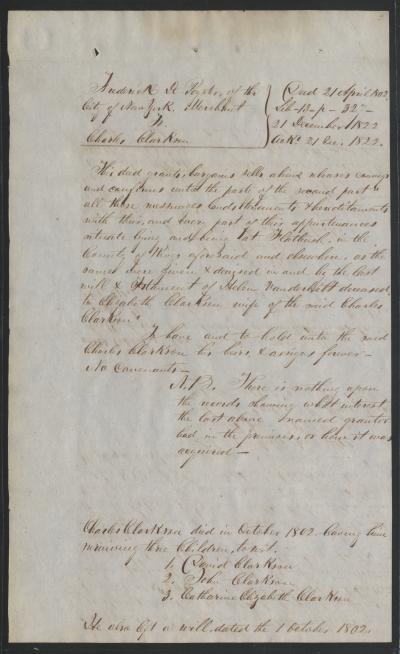 Frederick De Peyster, of the
City of New York. Merchant
To
Charles Clarkson
Deed 21 April 1802
Lib-13-p-327-
21 December 1822
Ack^d 21 Dec. 1822.
This deed grants, bargains sells aliens releases conveys
and confirms unto the party of the second part
all those messuages lands tenements & hereditaments
with their and every part of their appurtenances
situate lying and being at Flatbush, in the
County of Kings aforesaid and elsewhere, as the
same were given & devised in and by the last
will & testament of Helen Vanderbilt deceased
to Elizabeth Clarkson wife of the said Charles
Clarkson.
To have and to hold unto the said
Charles Clarkson his heirs & assigns forever-
No Covenants-
N.B. There is nothing upon
the records showing what interest
the last above named grantor
had in the premises, or how it was
acquired-
Charles Clarkson died in October 1802. leaving him
surviving three Children, to wit.
1. David Clarkson
2. John Clarkson
3. Catharine Elizabeth Clarkson
He also left a will, dated the 1 October 1802.